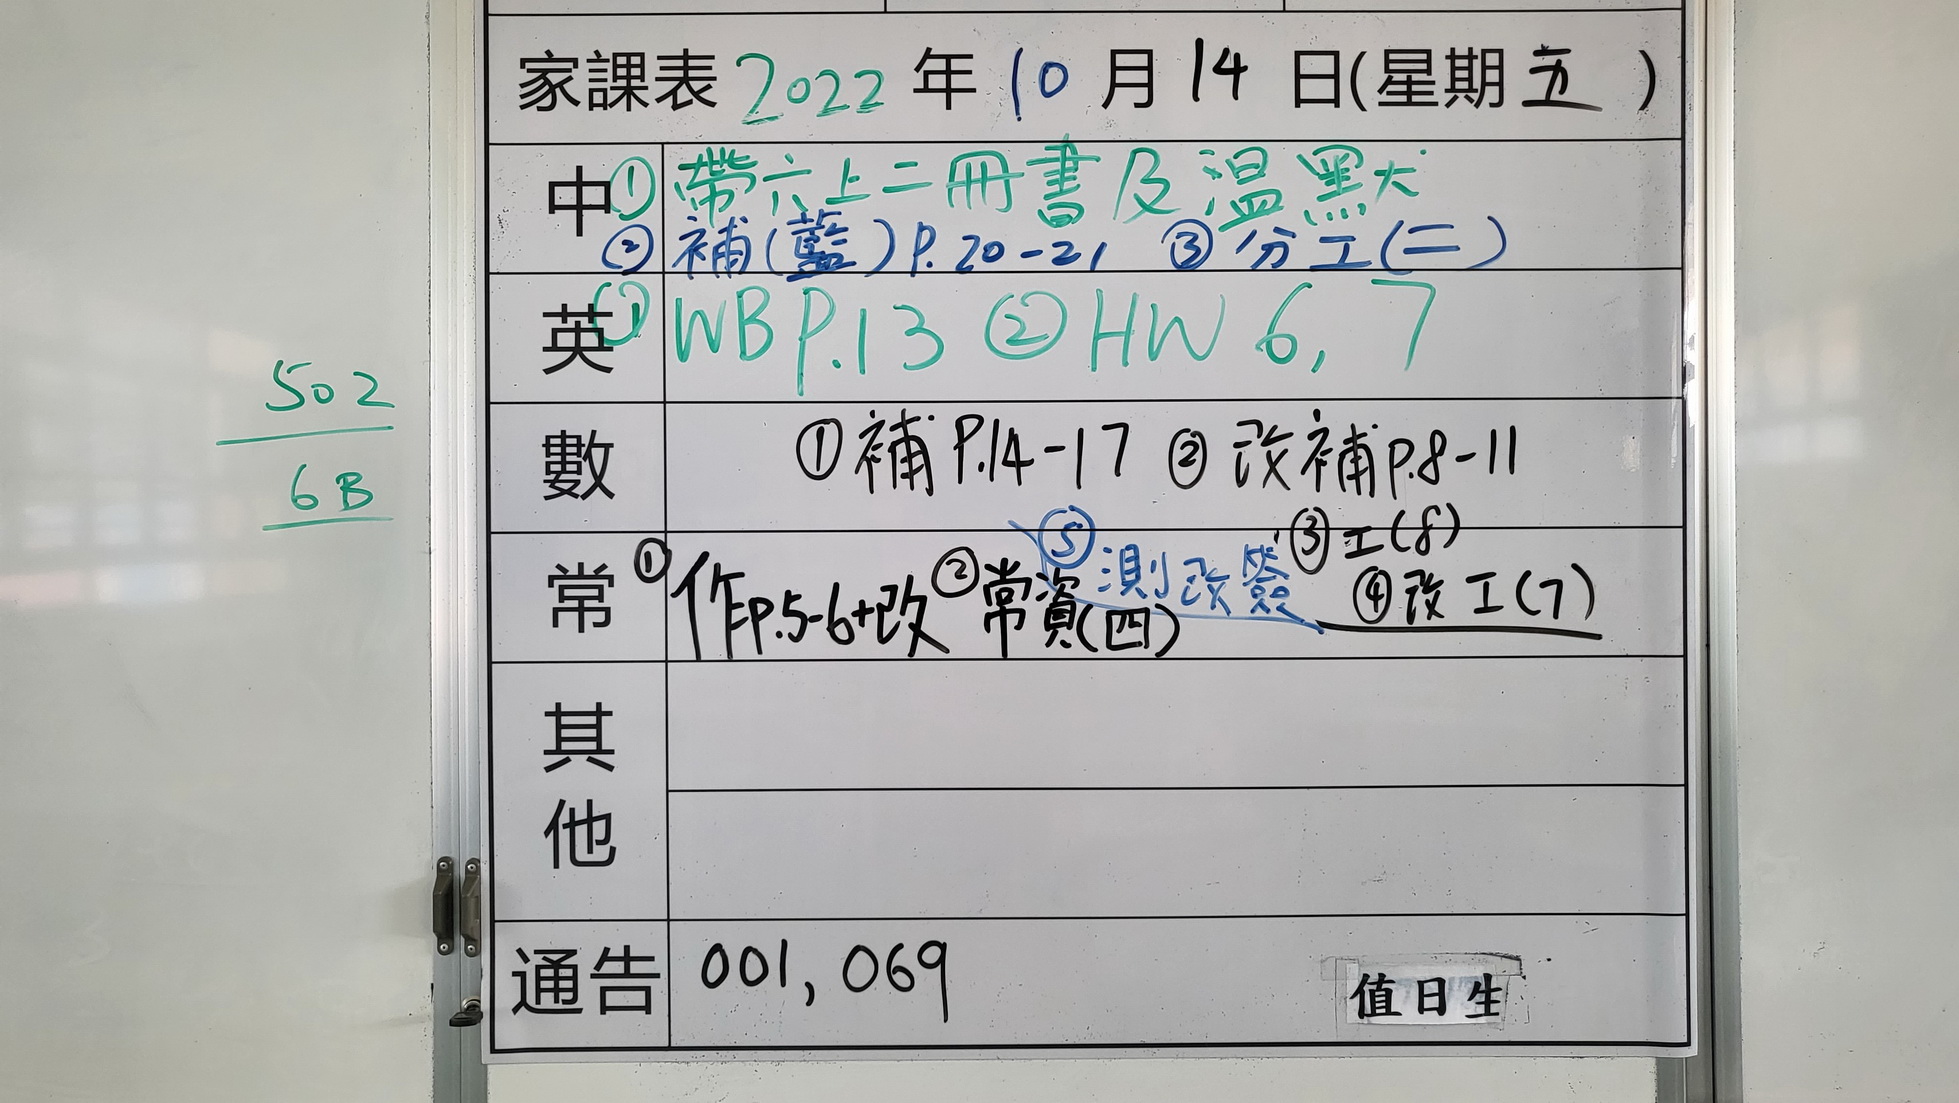 家課表 2022 年 10 月 14 日(星期五)
中 ① 帶六上二冊書及溫默
② 補(藍)P.20-21 ③ 分工(二)
英 ① WB P.13 ② HW 6, 7
數 ① 補 P.14-17 ② 改補 P.8-11
常 ① 作 P.5-6+改 ② 常資(四) ③ 工(8)
④ 改工(7)
⑤ 測改簽
其他
通告 001, 069
值日生
502
6B